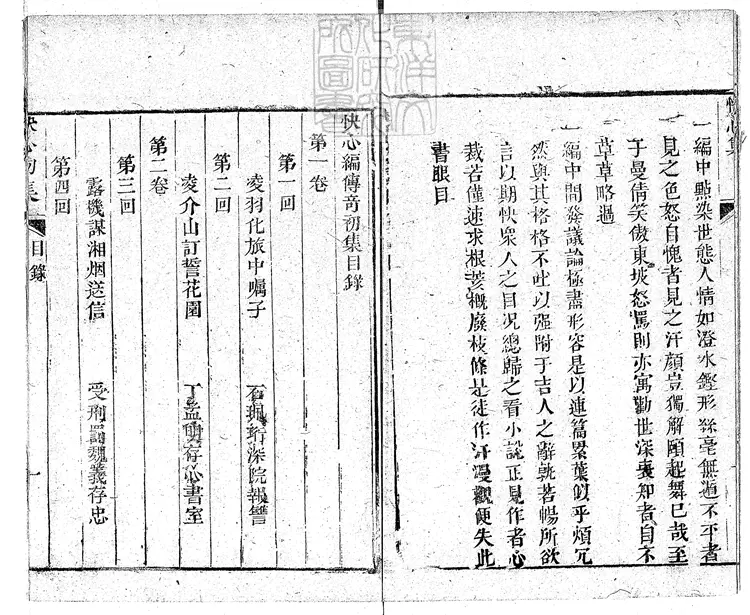 快心集
一編中點染世態人情如澄水鑒形絲毫無遁不平者
見之色怒自愧者見之汗顏豈獨解頤起舞已哉至
于曼倩笑傲東坡怒罵則亦寓勸世深衷知者自不
草草略過
一編中間發議論極盡形容是以連篇累葉似乎煩冗
然與其格格不吐以强附于吉人之辭孰若暢所欲
言以期快衆人之目況總歸之看小說正見作者心
裁若僅速求根荄概廢枝條是徒作汗漫觀便失此
書眼目
快心編傳奇初集目錄
第一卷
第一回
凌羽化旅中囑子 石珮珩深院報讐
第二回
凌介山訂誓花園 丁孟明存心書室
第二卷
第三回
露機謀湘烟送信 受刑罰魏義存忠
第四回
快心初集
目錄
一
東洋文化研究所圖書